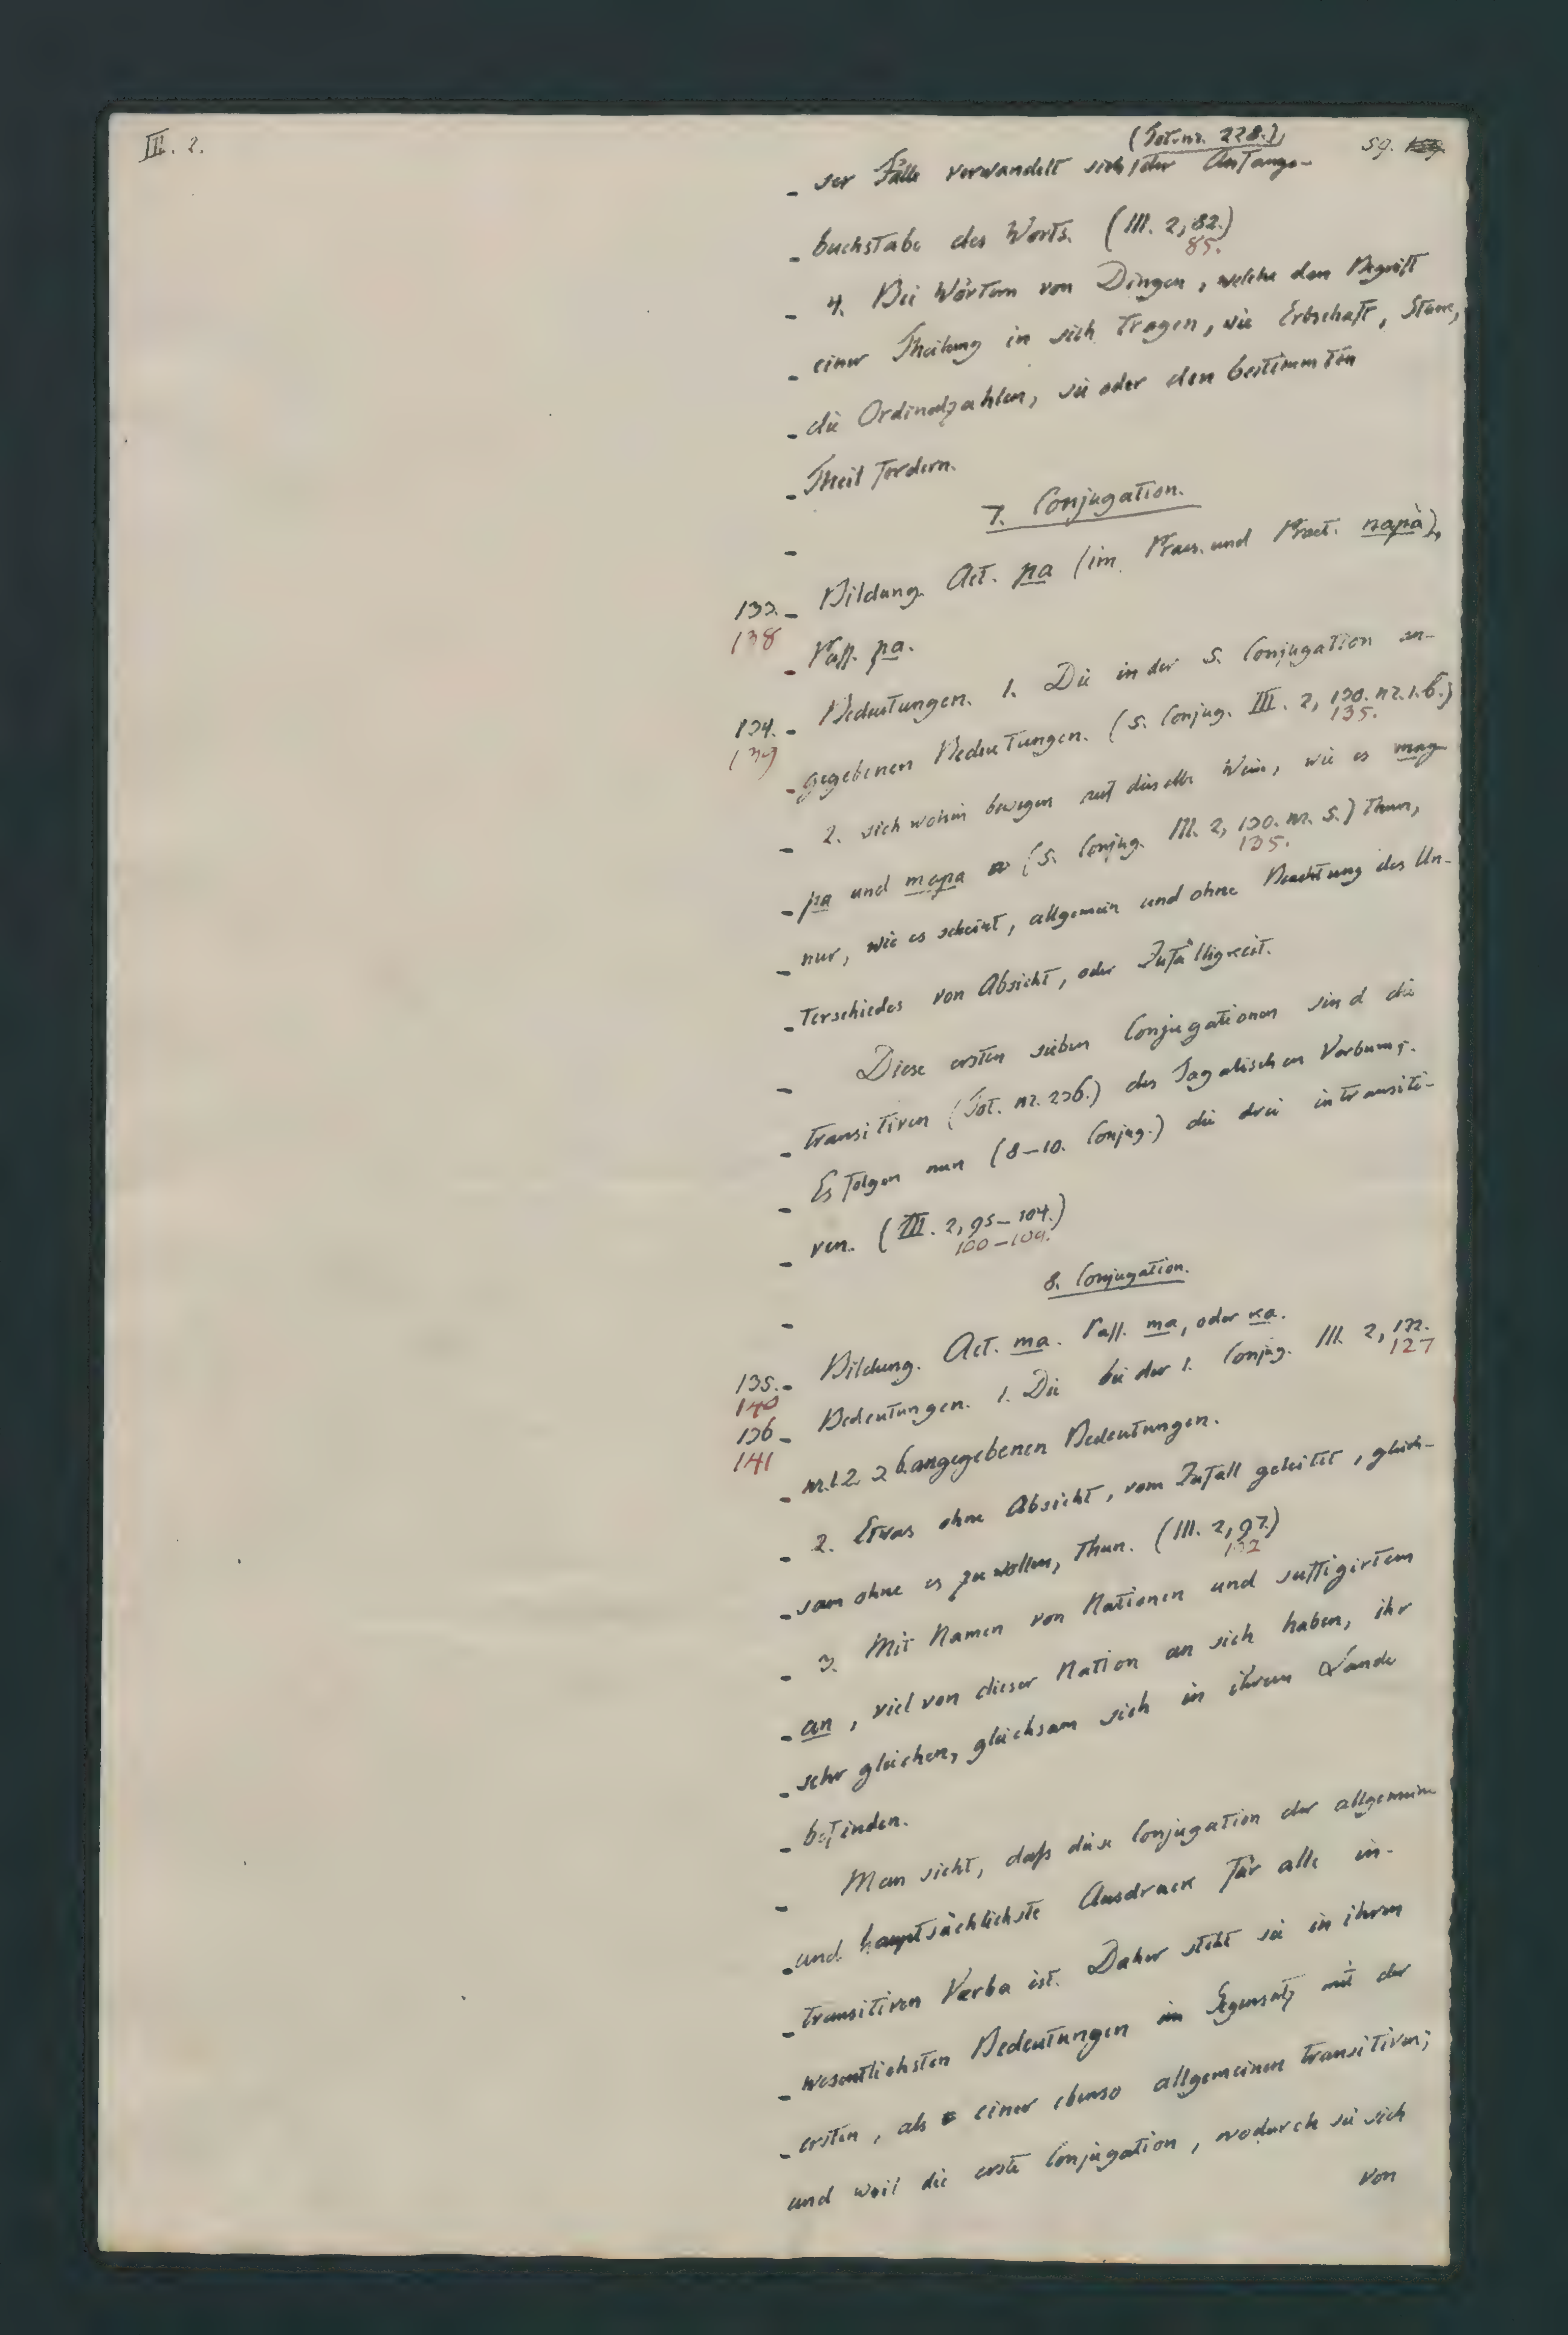 III. 2.
(Tot. nr. 228.), 59.
ser Fälle verwandelt sich der Anfangs-
buchstabe des Worts. (III. 2, 82.)
85.
4. Bei Wörtern von Dingen, welche den Begriff
einer Theilung in sich tragen, wie Erbschaft,
die Ordinalzahlen, sie oder den bestimmten
Theil fordern.
7. Conjugation.
133. Bildung. Act. pa (im Praes. und Praet. napà),
138
Pass. pa.
134. Bedeutungen. 1. Die in der 5. Conjugation an-
139
gegebenen Bedeutungen. (5. Conjug. III. 2, 130. nr. 1. b.)
135.
2. sich wohin bewegen auf dieselbe Weise, wie es mag
pa und mapa (5. Conjug. III. 2, 130. nr. 5.) thun,
135.
nur, wie es scheint, allgemein und ohne Beachtung des Un-
terschiedes von Absicht, oder Zufälligkeit.
Diese ersten sieben Conjugationen sind die
transitiven (Tot. nr. 236.) des Tagalischen Verbums.
Es folgen nun (8–10. Conjug.) die drei intransiti-
ven. (III. 2, 95–104.)
100–109.
8. Conjugation.
135. Bildung. Act. ma. Pass. ma, oder ka.
140
136 Bedeutungen. 1. Die bei der 1. Conjug. III. 2, 122.
127
141
nr. 1. 2. 3. b. angegebenen Bedeutungen.
2. Etwas ohne Absicht, vom Zufall geleitet, gleich-
sam ohne es zu wollen, thun. (III. 2, 97.)
102
3. Mit Namen von Nationen und suffigirtem
an, viel von dieser Nation an sich haben, ihr
sehr gleichen, gleichsam sich in ihrem Lande
befinden.
Man sieht, daß diese Conjugation der allgemeine
und hauptsächlichste Ausdruck für alle in-
transitiven Verba ist. Daher steht sie in ihren
wesentlichsten Bedeutungen im Gegensatz mit der
ersten, als einer ebenso allgemeinen transitiven;
und weil die erste Conjugation, wodurch sie sich
von